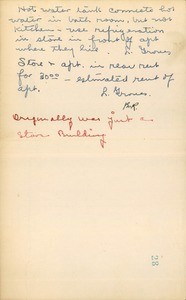 Hot water tank connects hot
water in bath room, but not
kitchen - use refrigeration
in store in front of apt
where they live - L. Groves
Store & apt. in rear rent
for 30.00 - estimated rent of
apt. L. Groves
Originally was just a
Store Building
28